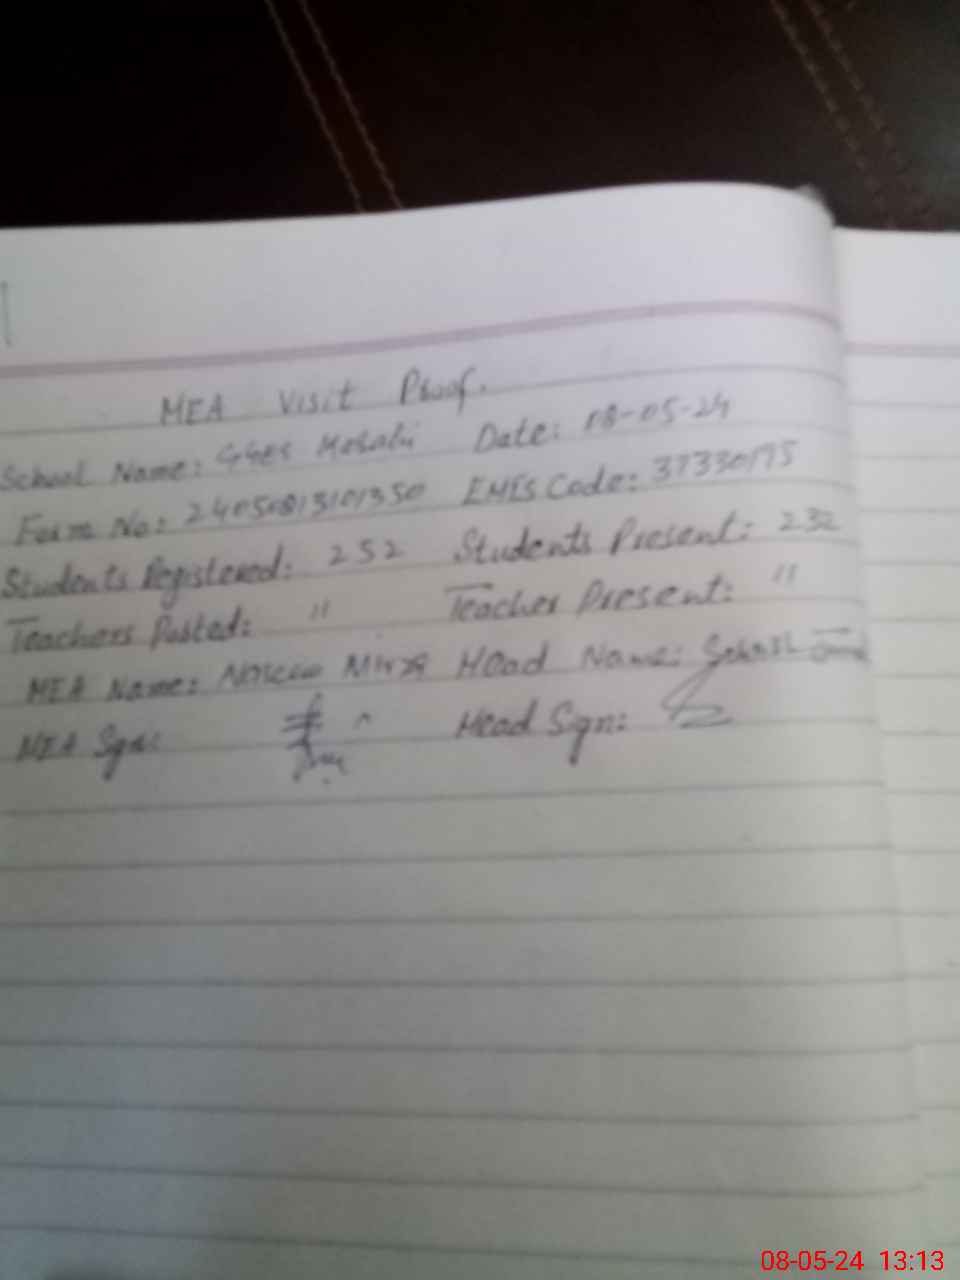 MEA Visit Proof.
School Name: GGES Date: 08-05-24
Form No: 24050813101350 EMIS Code: 37330175
Students Registered: 252 Students Present: 232
Teachers Posted: 11 Teacher Present: 11
MEA Name: Head Name:
MEA Sgn: Head Sgn:
08-05-24 13:13